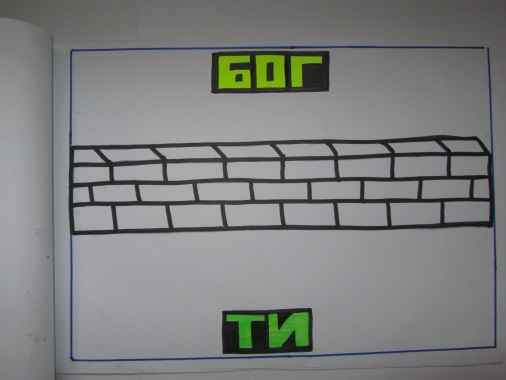 БОГ
ТИ